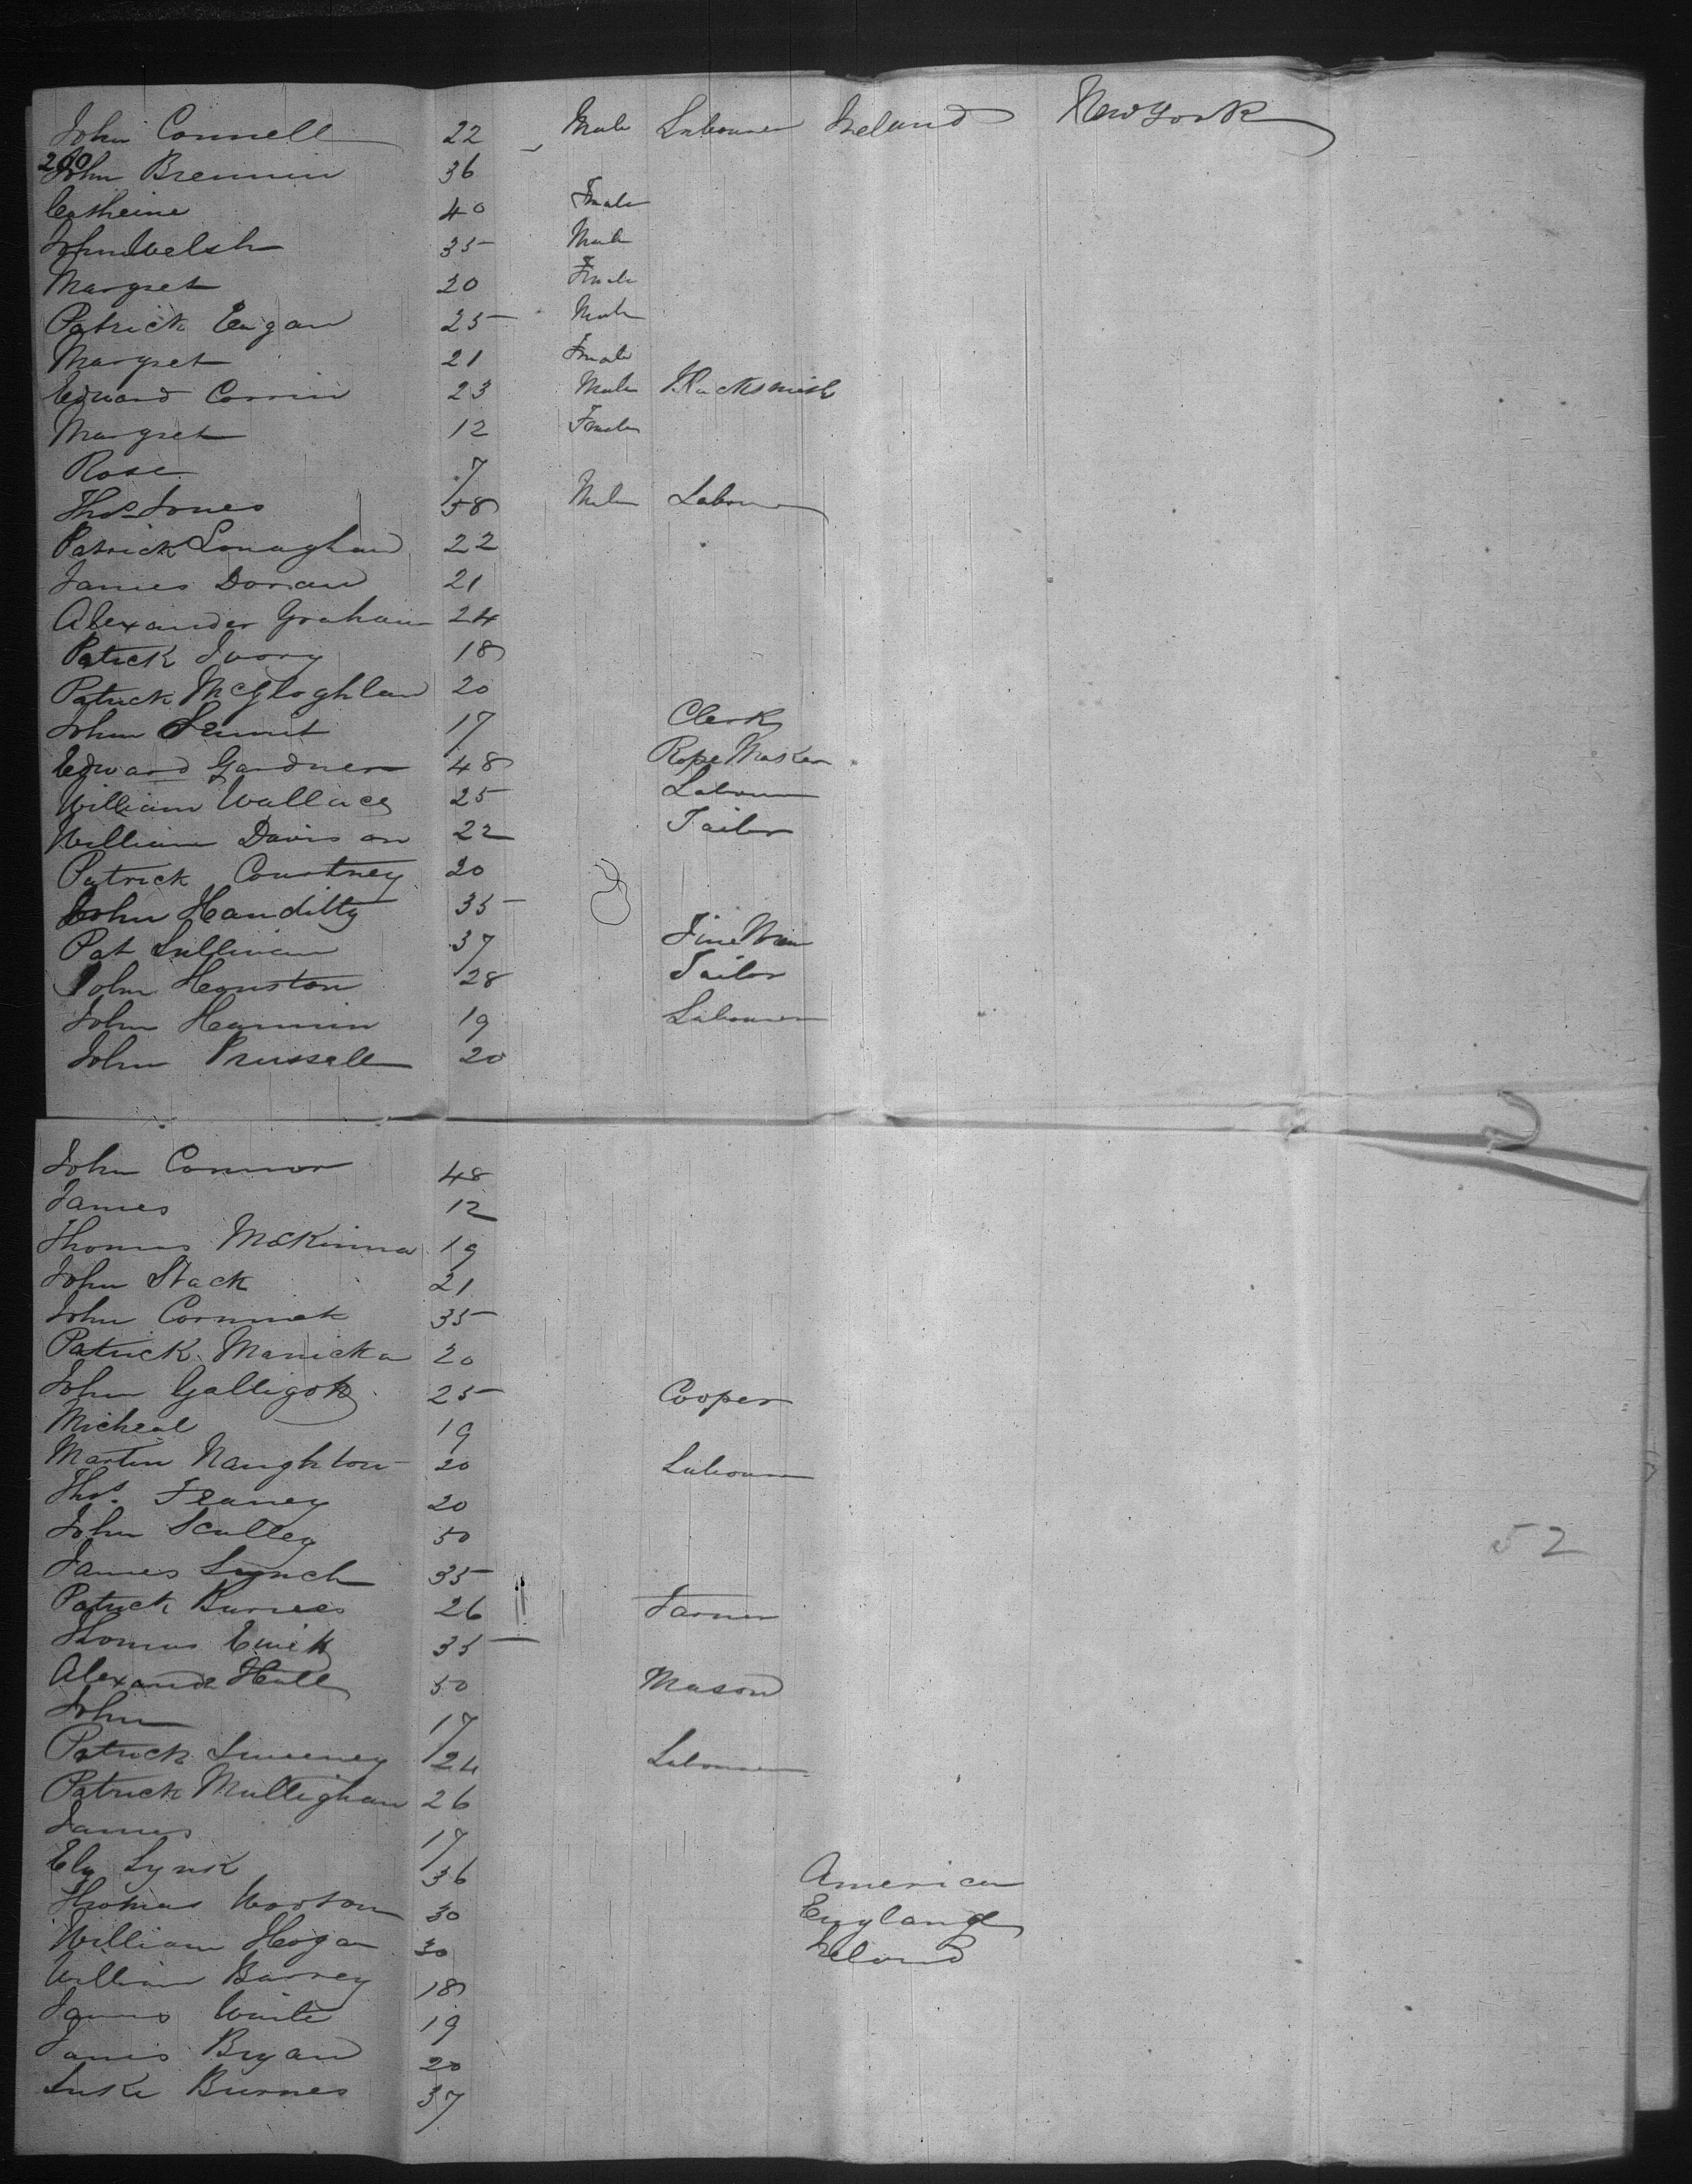 John Connell 22 Male Labourer Ireland New York
200
John Brennin 36
Catheine 40 Female
John Welsh 35
Male
Margret 20 Female
Patrick Eagan 25 Male
Margret 21 Female
Edward Corrin 23 Male Blacksmith
Margret 12 Female
Rose 7
Thos Jones 58 Male Labour
Patrick Lonaghan 22
James Doran 21
Alexander Graham 24
Patrick Ivory 18
Patrick McGloghlan 20
John 17 Clerk
Edward Gardner 48 Rope Maker
William Wallace 25 Labour
William Davis on 22 Tailor
Patrick Courtney 20
John Handilty 35
Pat Sullivan 37
John Henston 28 Tailor
John Hannin 19 Labourer
John Prussell 20
John Connor 48
James 12
Thomas McKinna 19
John Stack 21
John Cormick 35
Patrick Manicka 20
John 25 Cooper
Micheal 19
Martin Naughton 20 Labour
Thos. Feaney 20
John Sculley 50
James Lynch 35
Patrick Burnes 26 Farmer
Thomas 35
Alexande Hall 50 Mason
John 17
Patrick Sweeney 24 Labourer
52
Patrick Mullighan 26
James 17
Ely Lynk 36 American
Thomas Worton 30 England
William Hogan 30 Ireland
William Barrey 18
James White 19
James Bryan 20
Luke Burnes 37